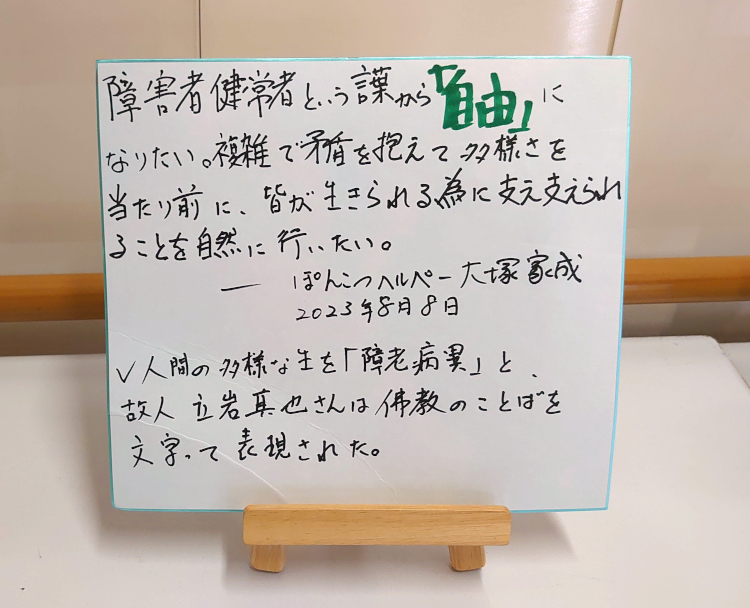 障害者健常者という言葉から「自由」に
なりたい。複雑で矛盾を抱えて多様さを
当たり前に、皆が生きられる為に支え支えられ
ることを自然に行いたい。
― ぽんこつヘルパー大塚家成
2023年8月8日
✓人間の多様な生を「障老病異」と、
故人立岩真也さんは佛教のことばを
文字って表現された。